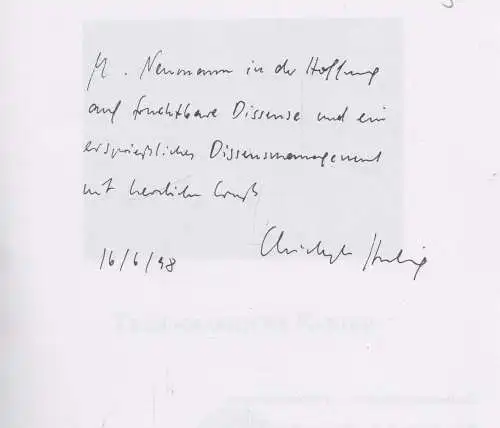 M. Neumann in der Hoffnung
auf fruchtbare Dissense und ein
ersprießliches Dissensmanagement
mit herzlichem Gruß
16/6/98 Christoph Hubig